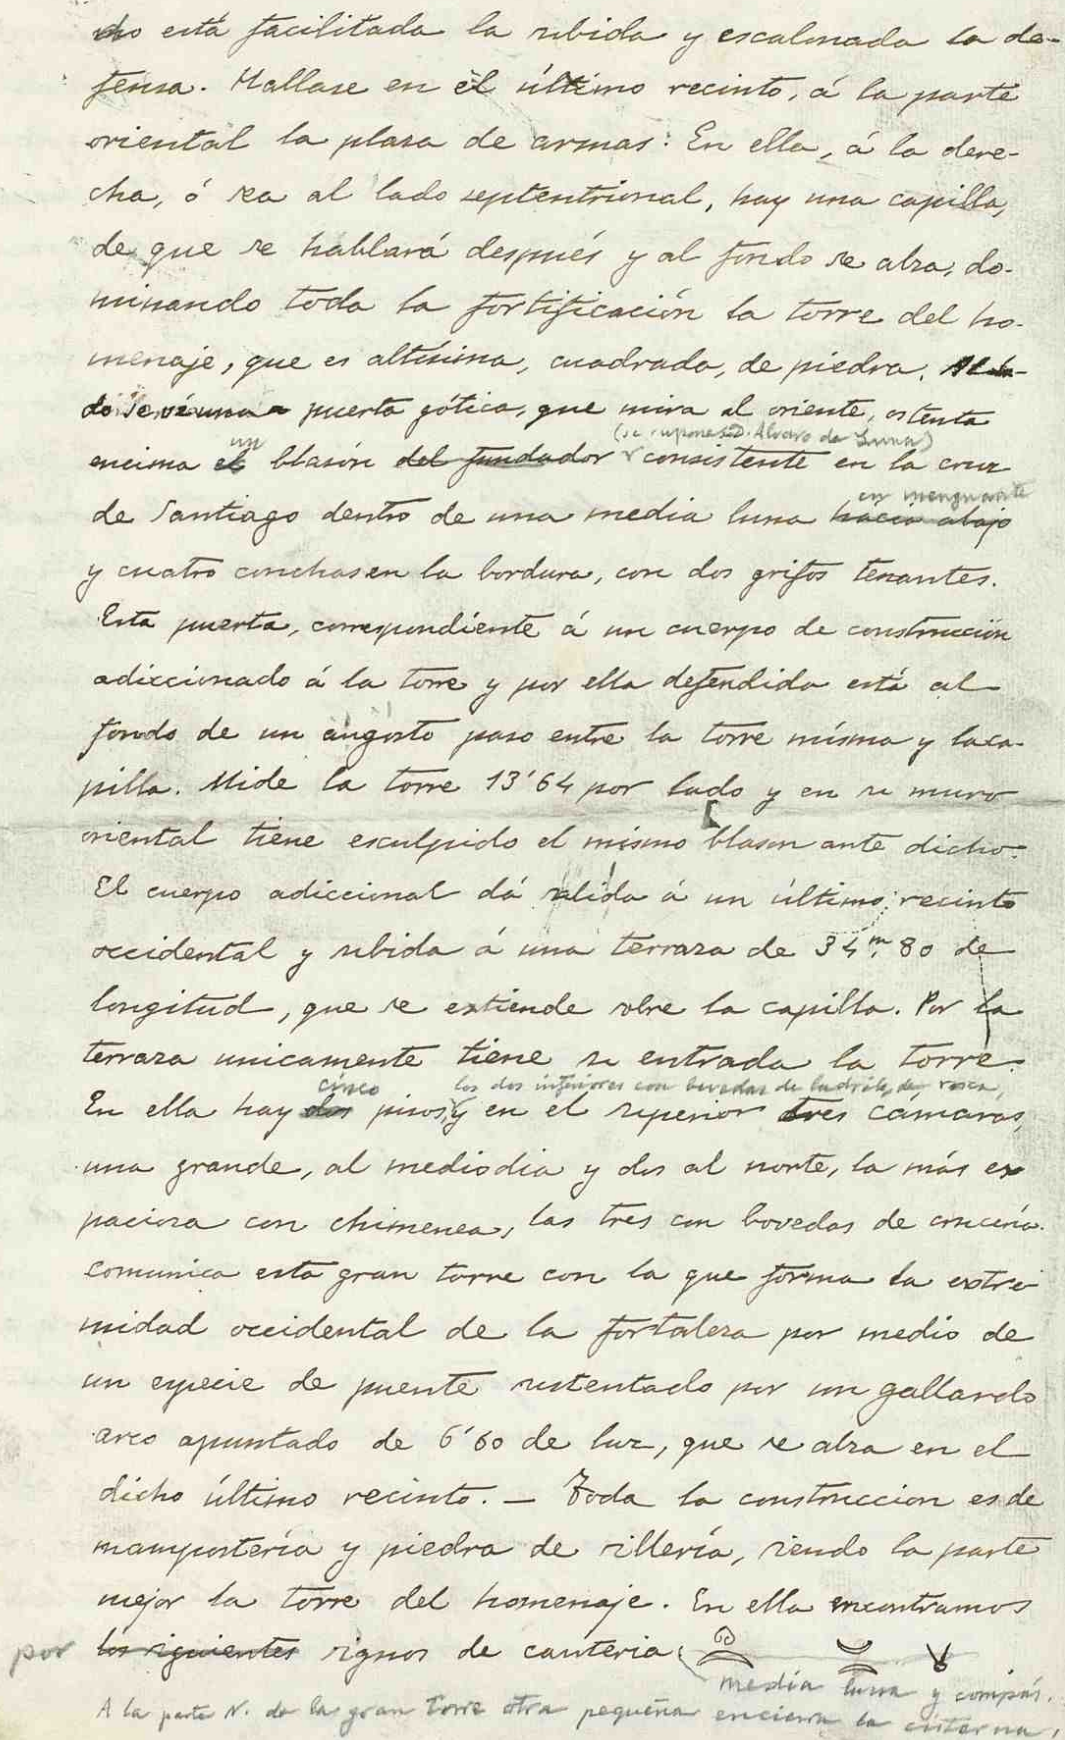 do está facilitada la subida y escalonada la de-
fensa. Hallase en el último recinto, á la parte
oriental la plaza de armas: En ella, á la dere-
cha, ó sea al lado septentrional, hay una capilla,
de que se hablará después y al fondo se alza, do-
minando toda la fortificación la torre del ho-
menaje, que es altísima, cuadrada, de piedra. Al la-
do se vé una puerta gótica, que mira al oriente, ostenta
un (se supone D. Alvaro de Luna)
encima el blasón del fundador consistente en la cruz
en menguante
de Santiago dentro de una media luna hacia abajo
y cuatro conchas en la bordura, con dos grifos tenantes.
Esta puerta, correspondiente á un cuerpo de construcción
adiccionado á la torre y por ella defendida está al
fondo de un angosto paso entre la torre misma y la ca-
pilla. Mide la torre 13'64 por lado y en su muro
oriental tiene esculpido el mismo blason ante dicho.
El cuerpo adiccional dá salida á un último recinto
occidental y subida á una terraza de 34m,80 de
longitud, que se extiende sobre la capilla. Por la
terraza unicamente tiene su entrada la torre.
cinco los dos inferiores con bovedas de ladrillo, de rosca,
En ella hay dos pisos, y en el superior tres cámaras,
una grande, al mediodia y dos al norte, la más es
paciosa con chimenea, las tres con bovedas de crucería.
comunica esta gran torre con la que forma la extre-
midad occidental de la fortaleza por medio de
un especie de puente sustentado por un gallardo
arco apuntado de 6'60 de luz, que se alza en el
dicho último recinto. — Toda la construccion es de
mampostería y piedra de sillería, siendo la parte
mejor la torre del homenaje. En ella encontramos
por los siguientes signos de cantería:
media luna y compás.
A la parte N. de la gran torre otra pequeña encierra la cisterna.